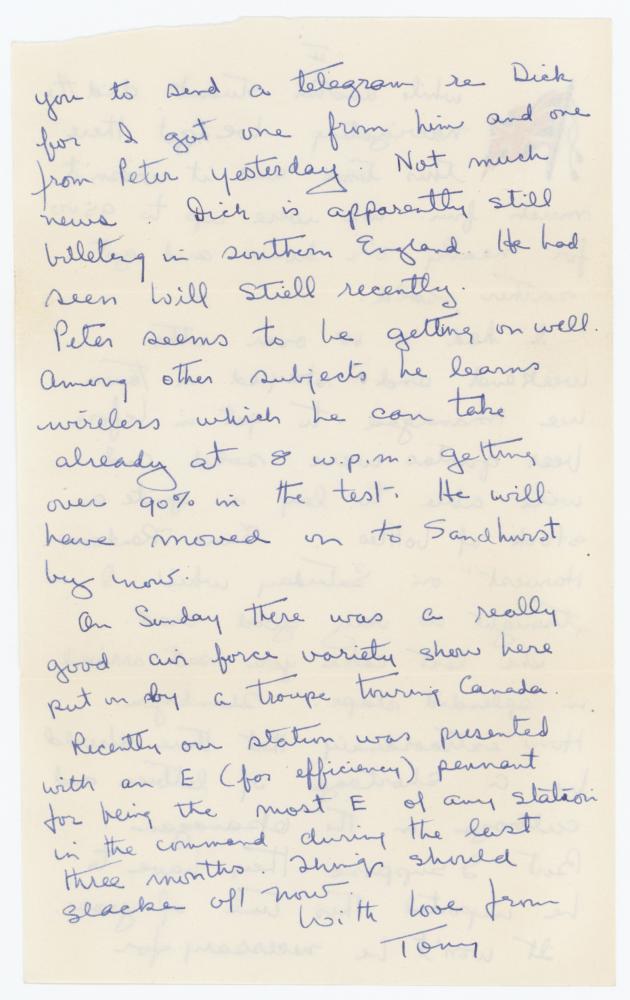 you to send a telegram re Dick
for I got one from him and one
from Peter yesterday. Not much
news. Dick is apparently still
billeting in southern England. He had
seen Will Stiell recently.
Peter seems to be getting on well.
Among other subjects he learns
wireless which he can take
already at 8 w.p.m. getting
over 90% in the test. He will
have moved on to Sandhurst
by now.
On Sunday there was a really
good air force variety show here
put on by a troupe touring Canada.
Recently our station was presented
with an E (for efficiency) pennant
for being the most E of any station
in the command during the last
three months. Things should
slacken off now.
With love from
Tony